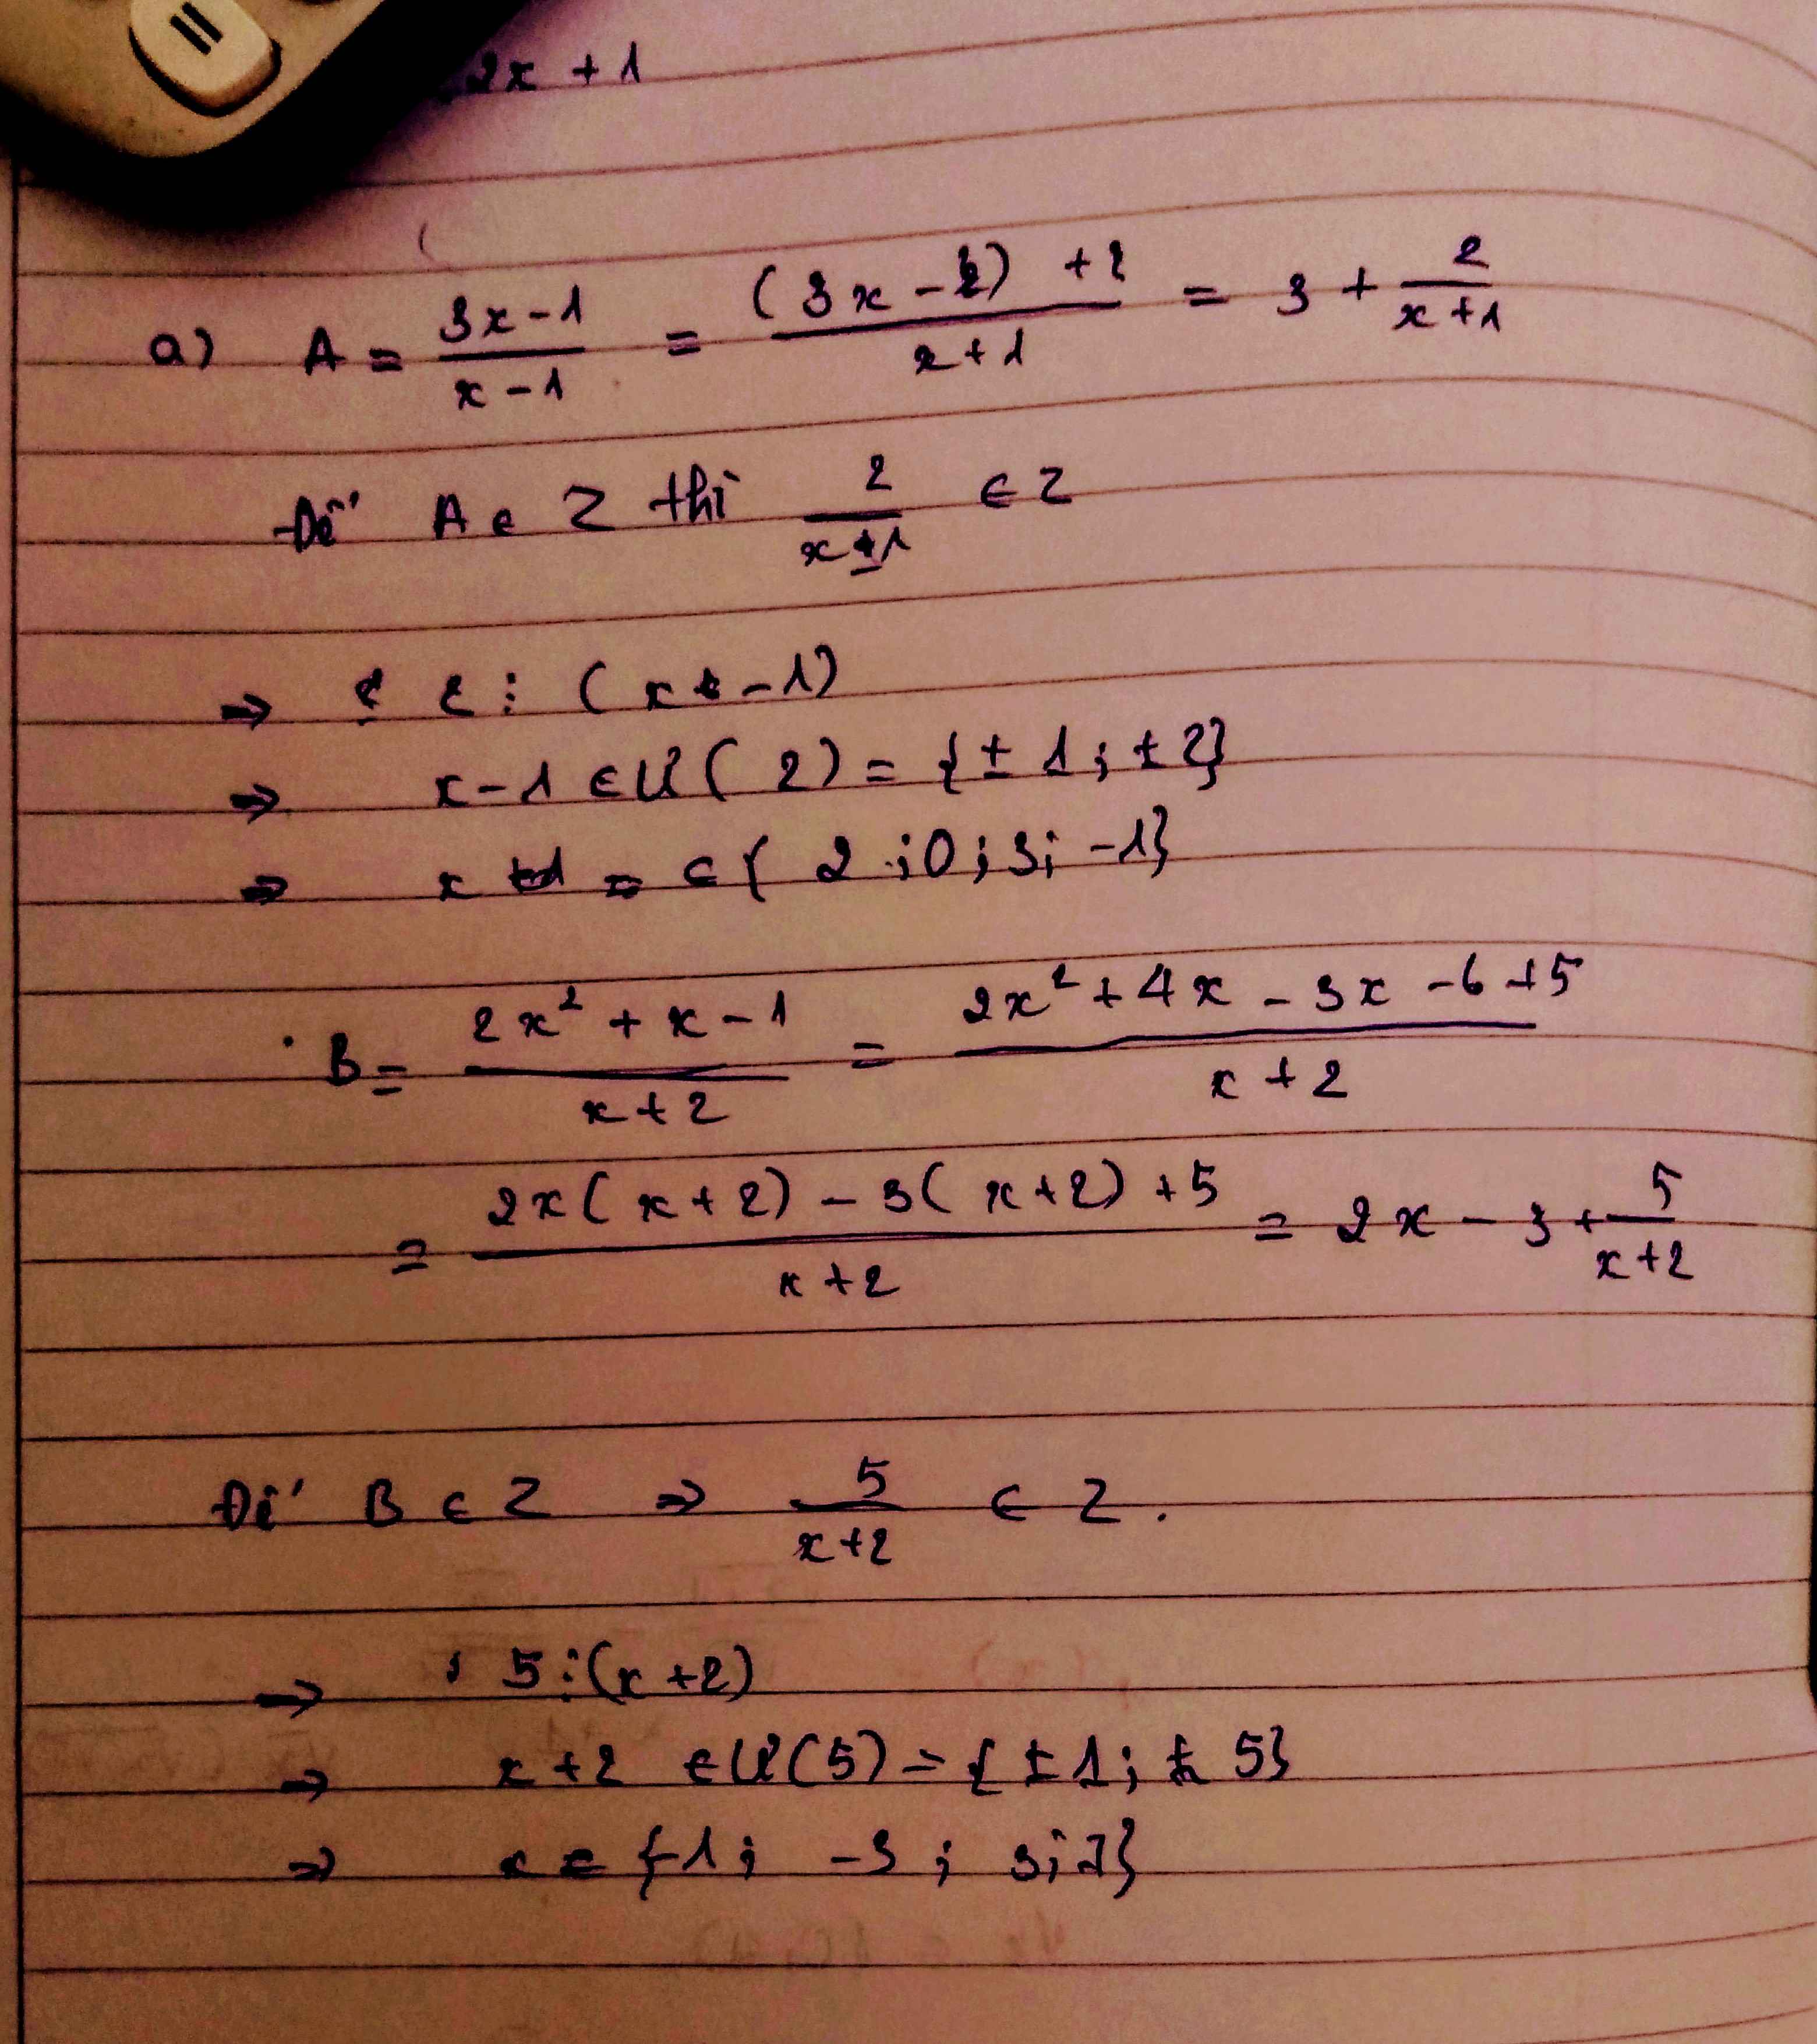 2x + 1
a) A = \frac{3x-1}{x-1} = \frac{(3x-3)+2}{x+1} = 3 + \frac{2}{x+1}
Để A ∈ Z thì \frac{2}{x-1} ∈ Z
⇒ 2 ⋮ (x - 1)
⇒ x-1 ∈ Ư(2) = {± 1; ± 2}
⇒ x ∈ { 2 ; 0 ; 3; -1}
B = \frac{2x² + x - 1}{x+2} = \frac{2x² + 4x - 3x - 6 + 5}{x + 2}
= \frac{2x(x+2) - 3(x+2) + 5}{x+2} = 2x - 3 + \frac{5}{x+2}
Để B ∈ Z ⇒ \frac{5}{x+2} ∈ Z.
⇒ 5 ⋮ (x +2)
⇒ x +2 ∈ Ư(5) = { ± 1; ± 5}
⇒ x = {-1; -3 ; 3;